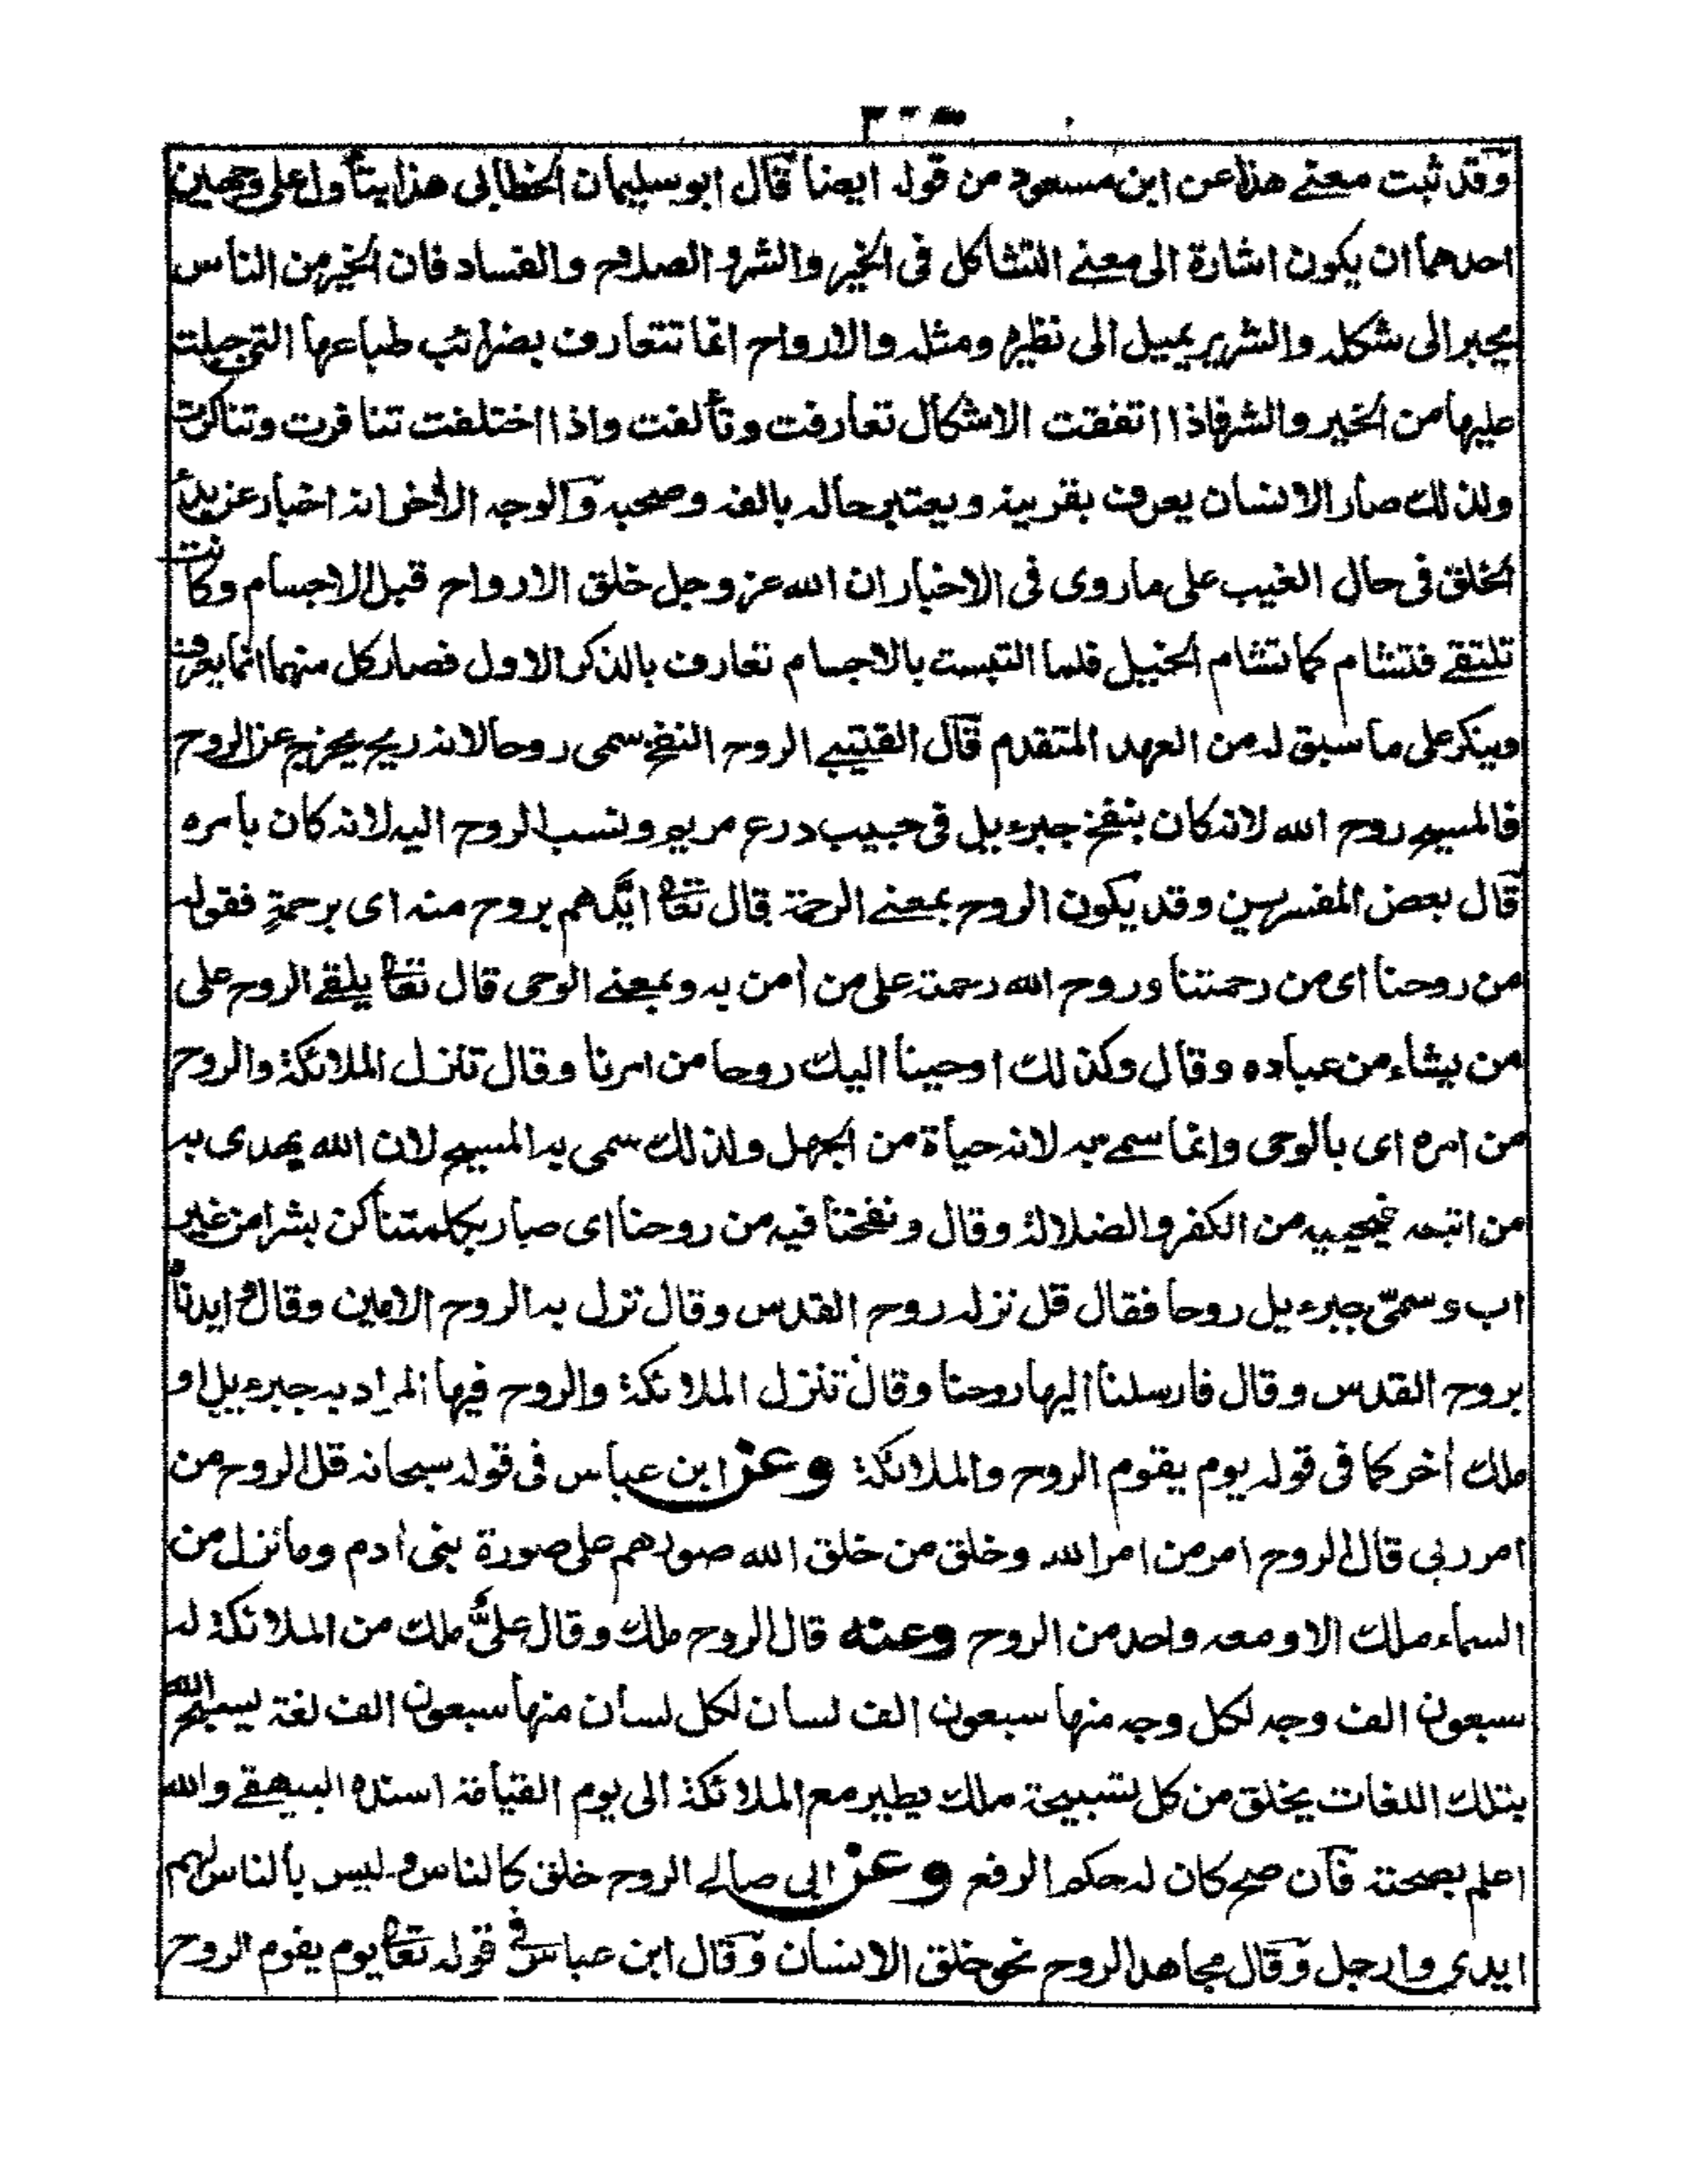 وقد ثبت معنے هذا عن ابن مسعود من قوله ايضا قال ابو سليمان الخطابی هذا يتأول علی وجهين
احدهما ان يكون اشارة الی معنے التشاكل فی الخير والشر و الصلاح والفساد فان الخير من الناس
يحبر الی شكله والشرير يميل الی نظيره ومثله والارواح انما تتعارف بضرائب طباعها التی جبلت
عليها من الخير والشر فاذا اتفقت الاشكال تعارفت وتألفت واذا اختلفت تنافرت وتناكرت
ولذلك صار الانسان يعرف بقرينه ويعتبر حاله بالفه وصحبه والوجه الاٰخر انه اخبار عن بدأ
الخلق فی حال الغيب علی ما روی فی الاخبار ان الله عز وجل خلق الارواح قبل الاجسام وكانت
تلتقے فتشام كما تشام الخيل فلما التبست بالاجسام تعارف بالذكر الاول فصار كل منهما انما يعرف
وينكر علی ما سبق له من العهد المتقدم قال القتيبے الروح النفخ سمی روحا لانه ريح يخرج عن الروح
فالمسيح روح الله لانه كان بنفخ جبرءيل فی جيب درع مريم ونسب الروح اليه لانه كان بأمره
قال بعض المفسرين وقد يكون الروح بمعنے الرحمة قال تعا ايّدهم بروح منه ای برحمةٍ فقوله
من روحنا ای من رحمتنا وروح الله رحمته علی من اٰمن به وبمعنے الوحی قال تعا يلقے الروح علی
من يشاء من عباده وقال وكذلك اوحينا اليك روحا من امرنا وقال تنزل الملائكة والروح
من امره ای بالوحی وانما سمے به لانه حياة من الجهل ولذلك سمی به المسيح لان الله يهدی به
من اتبعه فيحييه من الكفر والضلالة وقال ونفخنا فيه من روحنا ای صار بكلمتنا كن بشرا من غير
اب وسمّی جبرءيل روحا فقال قل نزله روح القدس وقال نزل به الروح الامين وقال وايدناه
بروح القدس وقال فارسلنا اليها روحنا وقال تنزل الملائكة والروح فيها المراد به جبرءيل او
ملك اٰخر كما فی قوله يوم يقوم الروح والملائكة وعن ابن عباس فی قوله سبحانه قل الروح من
امر ربی قال الروح امر من امر الله وخلق من خلق الله صورهم علی صورة بنی اٰدم وما نزل من
السماء ملك الا ومعه واحد من الروح وعنه قال الروح ملك وقال علیّ ملك من الملائكة له
سبعون الف وجه لكل وجه منها سبعون الف لسان لكل لسان منها سبعون الف لغة يسبح الله
بتلك اللغات يخلق من كل تسبيحة ملك يطير مع الملائكة الی يوم القيامة اسنده البيهقے والله
اعلم بصحته فان صح كان له حكم الرفع وعن ابی صالح الروح خلق كالناس وليس بالناس لهم
ايدی وارجل وقال مجاهد الروح نحو خلق الانسان وقال ابن عباس فی قوله تعا يوم يقوم الروح